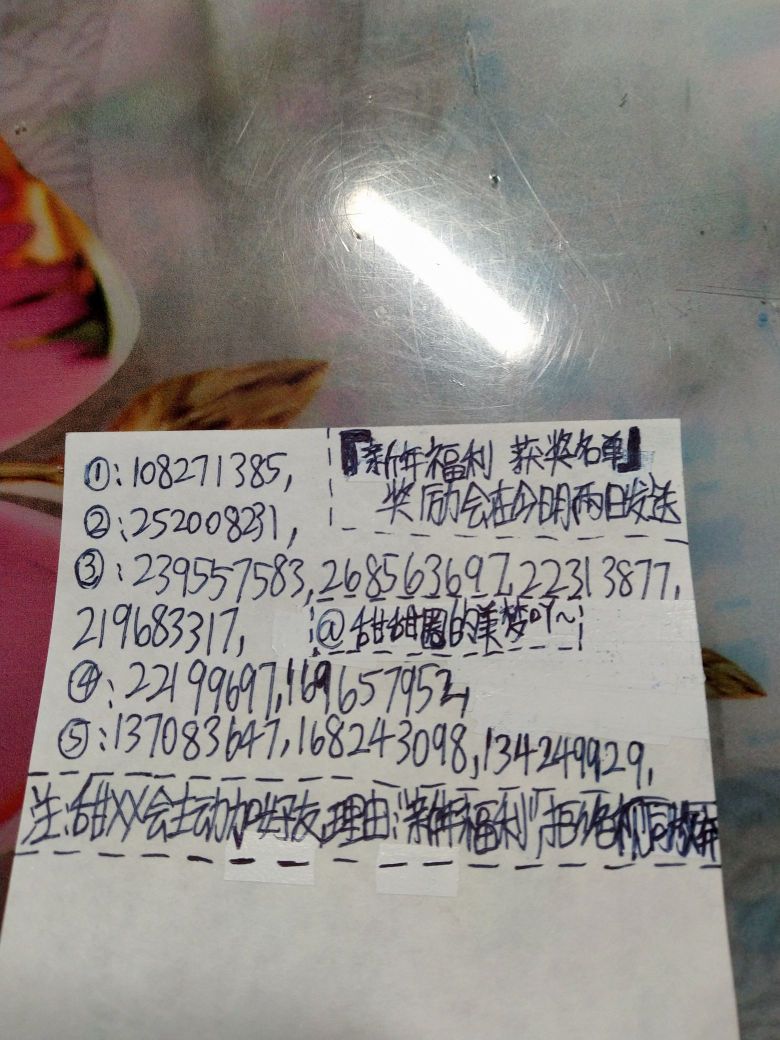 『新年福利 获奖名单』
奖励会在今明两日发送
①:108271385,
②:252008231,
③:239557583,268563697,22313877,
219683317,
@甜甜圈的美梦吖~
④:22199697,169657952,
⑤:137083647,168243098,134249929,
注:甜XX会主动加好友,理由:“新年福利”,拒绝视同放弃